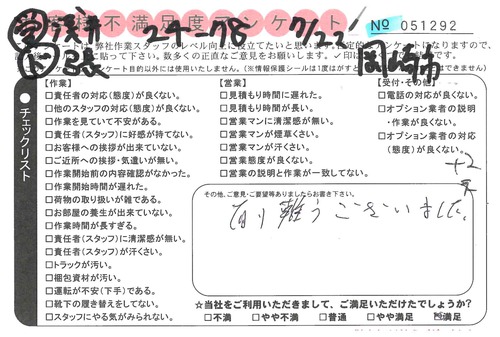 お客様不満足度アンケート
№ 051292
24-78
7/22
岡崎市
チェックリスト
【作業】
□責任者の対応(態度)が良くない。
□他のスタッフの対応(態度)が良くない。
□作業を見ていて不安がある。
□責任者(スタッフ)に好感が持てない。
□お客様への挨拶が出来ていない。
□ご近所への挨拶・気遣いが無い。
□作業開始前の内容確認がなかった。
□作業開始時間が遅れた。
□荷物の取り扱いが雑である。
□お部屋の養生が出来ていない。
□作業時間が長すぎる。
□責任者(スタッフ)に清潔感が無い。
□責任者(スタッフ)が汗くさい。
□トラックが汚い。
□梱包資材が汚い。
□運転が不安(下手)である。
□靴下の履き替えをしてない。
□スタッフにやる気がみられない。
【営業】
□見積もり時間に遅れた。
□見積もり時間が長い。
□営業マンに清潔感が無い。
□営業マンが煙草くさい。
□営業マンが汗くさい。
□営業態度が良くない。
□営業の説明と作業が一致してない。
【受付・その他】
□電話の対応が良くない。
□オプション業者の説明・作業が良くない。
□オプション業者の対応(態度)が良くない。
+2
その他、ご意見・ご要望等ありましたらお書き下さい。
有り難うございました。
☆当社をご利用いただきまして、ご満足いただけたでしょうか?
□不満 □やや不満 □普通 □やや満足 ☑満足